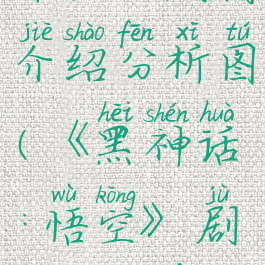 jiè shào fēn xī tú
介绍分析图
hēi shén huà
(《黑神话
wù kōng jù
:悟空》剧